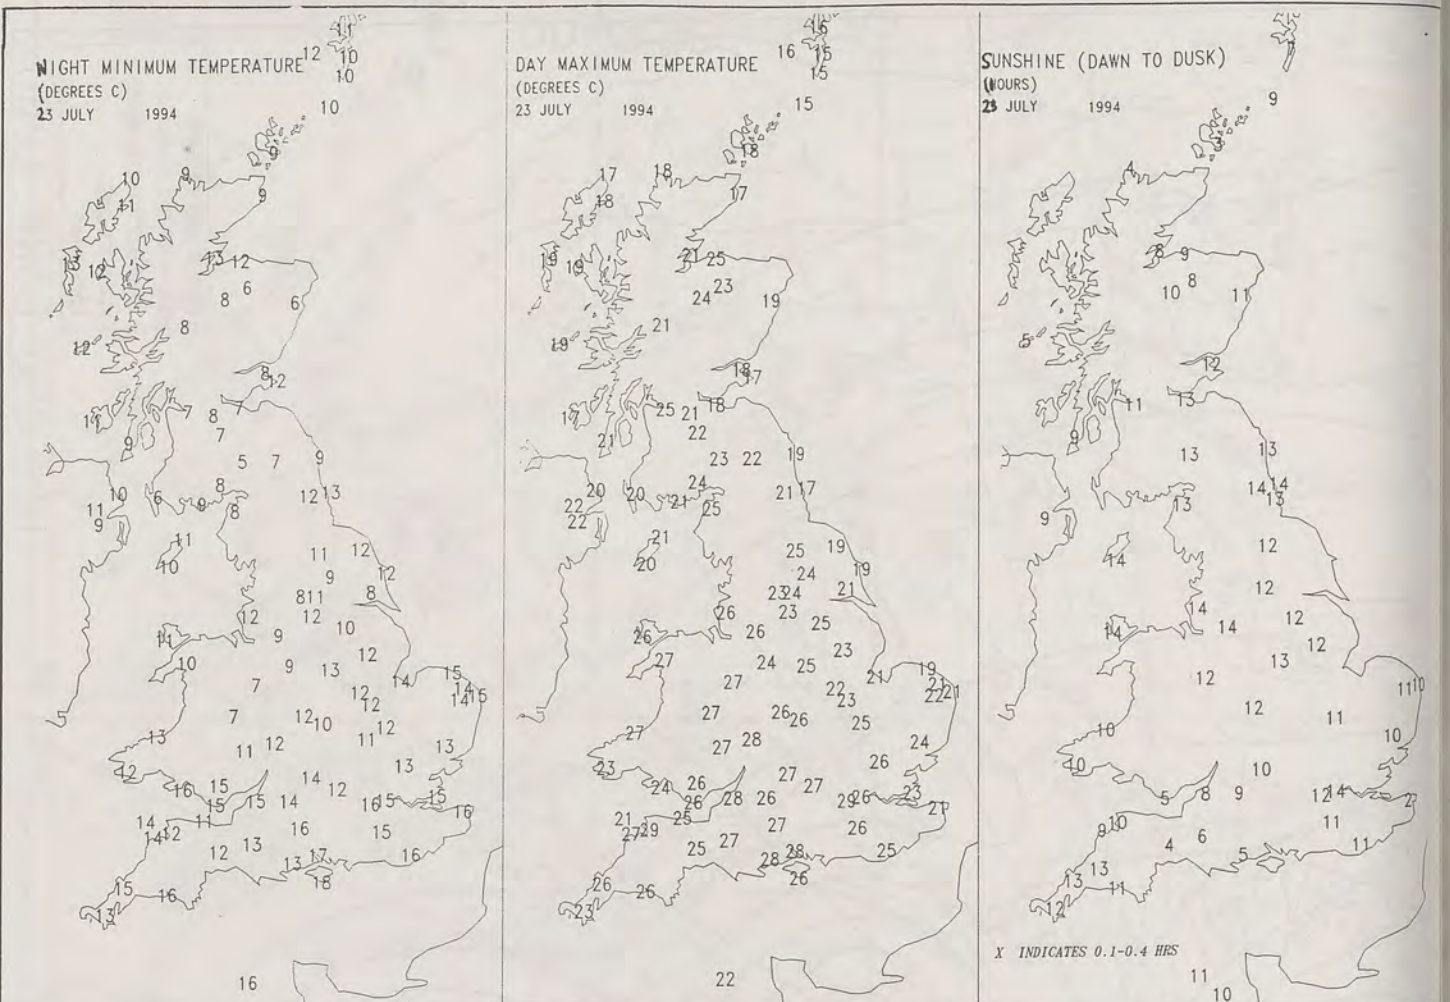 NIGHT MINIMUM TEMPERATURE
(DEGREES C)
23 JULY 1994
12
11
10
10
10
9
10
9
11
9
13
12
13
12
6
8
6
8
12
8
12
11
7
8
7
7
9
5
7
9
10
6
8
9
8
12
13
11
9
11
10
11
12
9
12
8
11
8
12
12
10
11
9
12
10
9
13
14
15
7
12
12
14
14
15
7
12
10
12
13
11
12
11
13
12
13
16
15
14
12
15
15
14
16
15
15
16
14
14
12
11
16
15
12
13
13
17
16
18
15
16
13
16
DAY MAXIMUM TEMPERATURE
(DEGREES C)
23 JULY 1994
16
16
15
15
15
18
17
18
18
17
21
25
19
19
23
24
19
21
19
18
17
17
25
21
18
22
21
23
22
19
20
20
24
21
25
21
17
22
22
21
20
25
19
24
19
23
24
21
26
23
25
26
26
23
27
24
25
21
19
27
22
23
21
22
21
27
26
26
25
27
27
28
24
23
26
24
26
26
28
26
27
27
29
26
23
21
21
27
29
25
27
26
25
27
28
28
25
26
26
26
23
22
SUNSHINE (DAWN TO DUSK)
(HOURS)
23 JULY 1994
9
4
8
9
8
10
11
5
12
11
13
9
13
13
14
14
13
13
9
14
12
12
14
14
14
12
12
13
12
11
10
12
11
10
10
10
10
5
8
9
12
14
2
9
10
4
6
5
11
11
13
13
11
12
X INDICATES 0.1-0.4 HRS
11
10